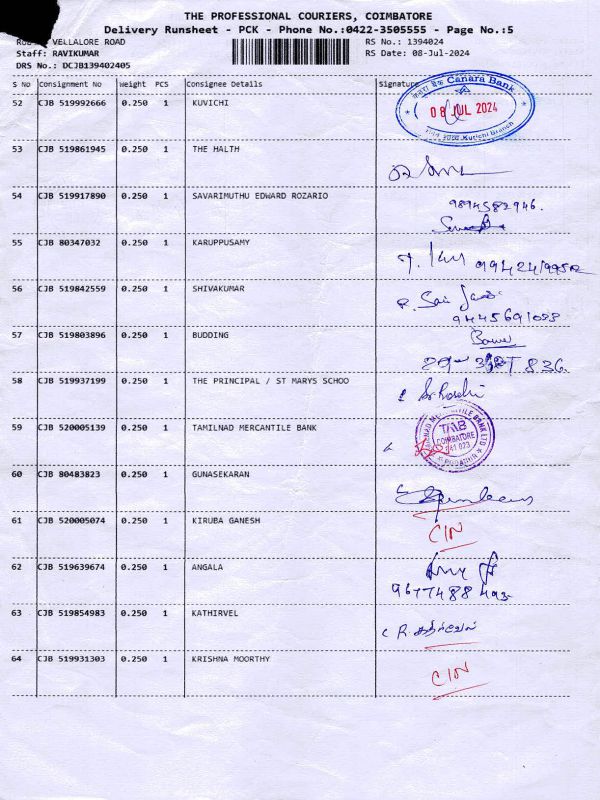 THE PROFESSIONAL COURIERS, COIMBATORE
Delivery Runsheet - PCK - Phone No.:0422-3505555 - Page No.:5
VELLALORE ROAD RS No.: 1394024
Staff: RAVIKUMAR RS Date: 08-Jul-2024
DRS No.: DCJB139402405
S No Consignment No Weight PCS Consignee Details Signature
Canara Bank
52 CJB 519992666 0.250 1 KUVICHI
08 JUL 2024
Kurichi Branch
53 CJB 519861945 0.250 1 THE HALTH
54 CJB 519917890 0.250 1 SAVARIMUTHU EDWARD ROZARIO
9894582946.
55 CJB 80347032 0.250 1 KARUPPUSAMY
56 CJB 519842559 0.250 1 SHIVAKUMAR
57 CJB 519803896 0.250 1 BUDDING
58 CJB 519937199 0.250 1 THE PRINCIPAL / ST MARYS SCHOO
59 CJB 520005139 0.250 1 TAMILNAD MERCANTILE BANK
TAMILNAD MERCANTILE BANK LTD
TMB
COIMBATORE
641 023
PODANUR
60 CJB 80483823 0.250 1 GUNASEKARAN
61 CJB 520005074 0.250 1 KIRUBA GANESH
CIN
62 CJB 519639674 0.250 1 ANGALA
63 CJB 519854983 0.250 1 KATHIRVEL
R. கதிர்வேல்
64 CJB 519931303 0.250 1 KRISHNA MOORTHY
CIN